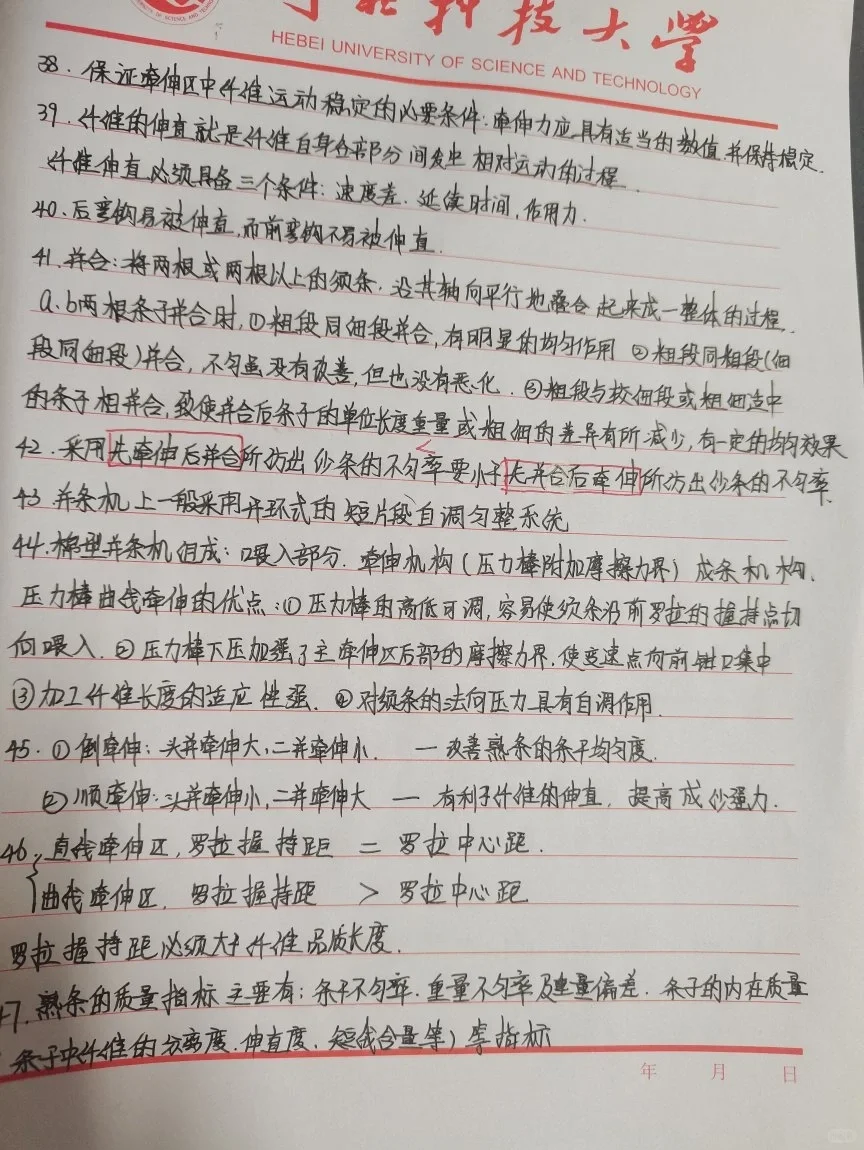 科技大学
HEBEI UNIVERSITY OF SCIENCE AND TECHNOLOGY
38. 保证牵伸区中纤维运动稳定的必要条件:牵伸力应具有适当的数值,并保持稳定.
39. 纤维的伸直就是纤维自身各部分间发生相对运动的过程.
纤维伸直必须具备三个条件:速度差.延续时间,作用力.
40. 后弯钩易被伸直,而前弯钩不易被伸直.
41. 并合:将两根或两根以上的须条,沿其轴向平行地叠合起来成一整体的过程.
a.b两根条子并合时,①粗段同细段并合,有明显的均匀作用 ②粗段同粗段(细
段同细段)并合,不匀虽没有改善,但也没有恶化.③粗段与较细段或粗细适中
的条子相并合,致使并合后条子的单位长度重量或粗细的差异有所减少,有一定的均匀效果
<
42. 采用先牵伸后并合所纺出纱条的不匀率要小于先并合后牵伸所纺出纱条的不匀率.
43 并条机上一般采用开环式的短片段自调匀整系统
44. 棉型并条机组成:喂入部分.牵伸机构(压力棒附加摩擦力界)成条机构.
压力棒曲线牵伸的优点:①压力棒的高低可调,容易使须条沿前罗拉的握持点切
向喂入.②压力棒下压加强了主牵伸区后部的摩擦力界,使变速点向前钳口集中
③加工纤维长度的适应性强.④对须条的法向压力具有自调作用.
45. ①倒牵伸:头并牵伸大,二并牵伸小. — 改善熟条的条干均匀度.
②顺牵伸:头并牵伸小,二并牵伸大 — 有利于纤维的伸直,提高成纱强力.
46. 直线牵伸区,罗拉握持距 = 罗拉中心距.
曲线牵伸区.罗拉握持距 > 罗拉中心距
罗拉握持距必须大于纤维品质长度.
47. 熟条的质量指标主要有:条干不匀率.重量不匀率及重量偏差.条子的内在质量
条子中纤维的分离度.伸直度.短绒含量等)等指标
年 月 日